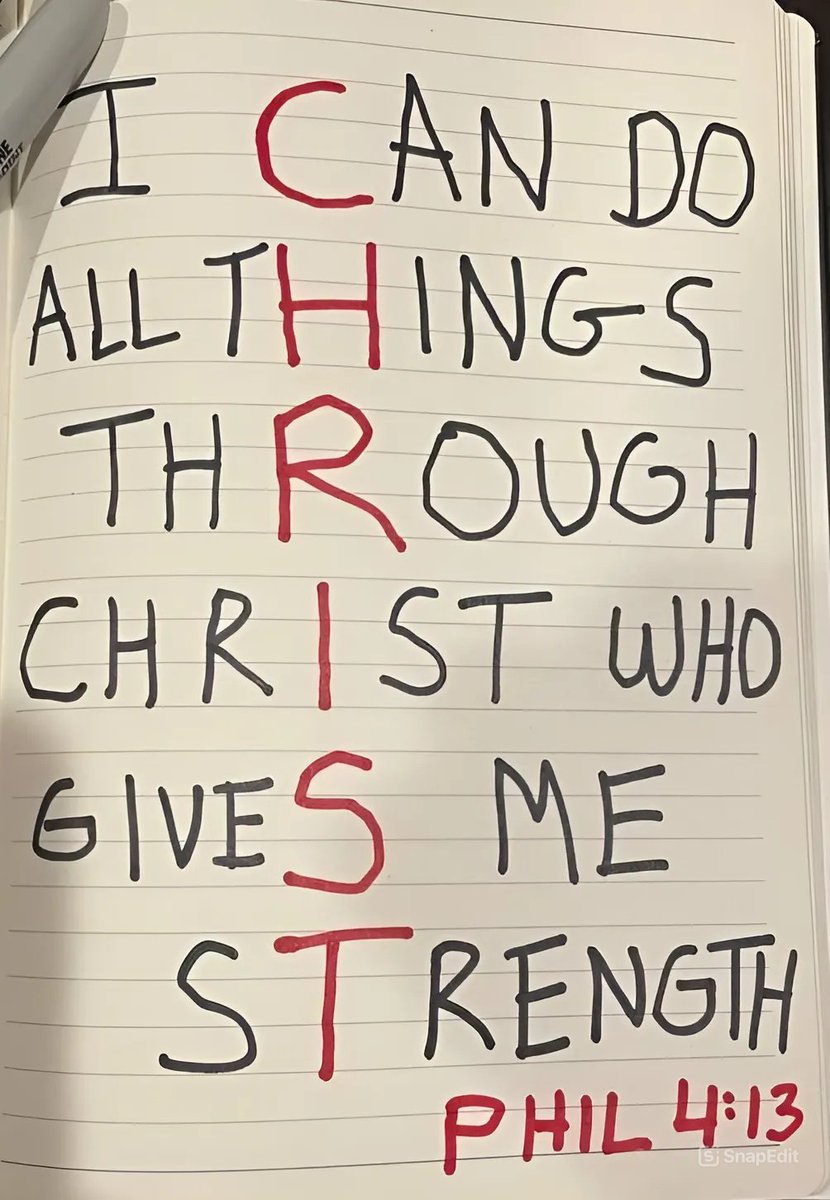 I CAN DO
ALL THINGS
THROUGH
CHRIST WHO
GIVES ME
STRENGTH
PHIL 4:13
SnapEdit